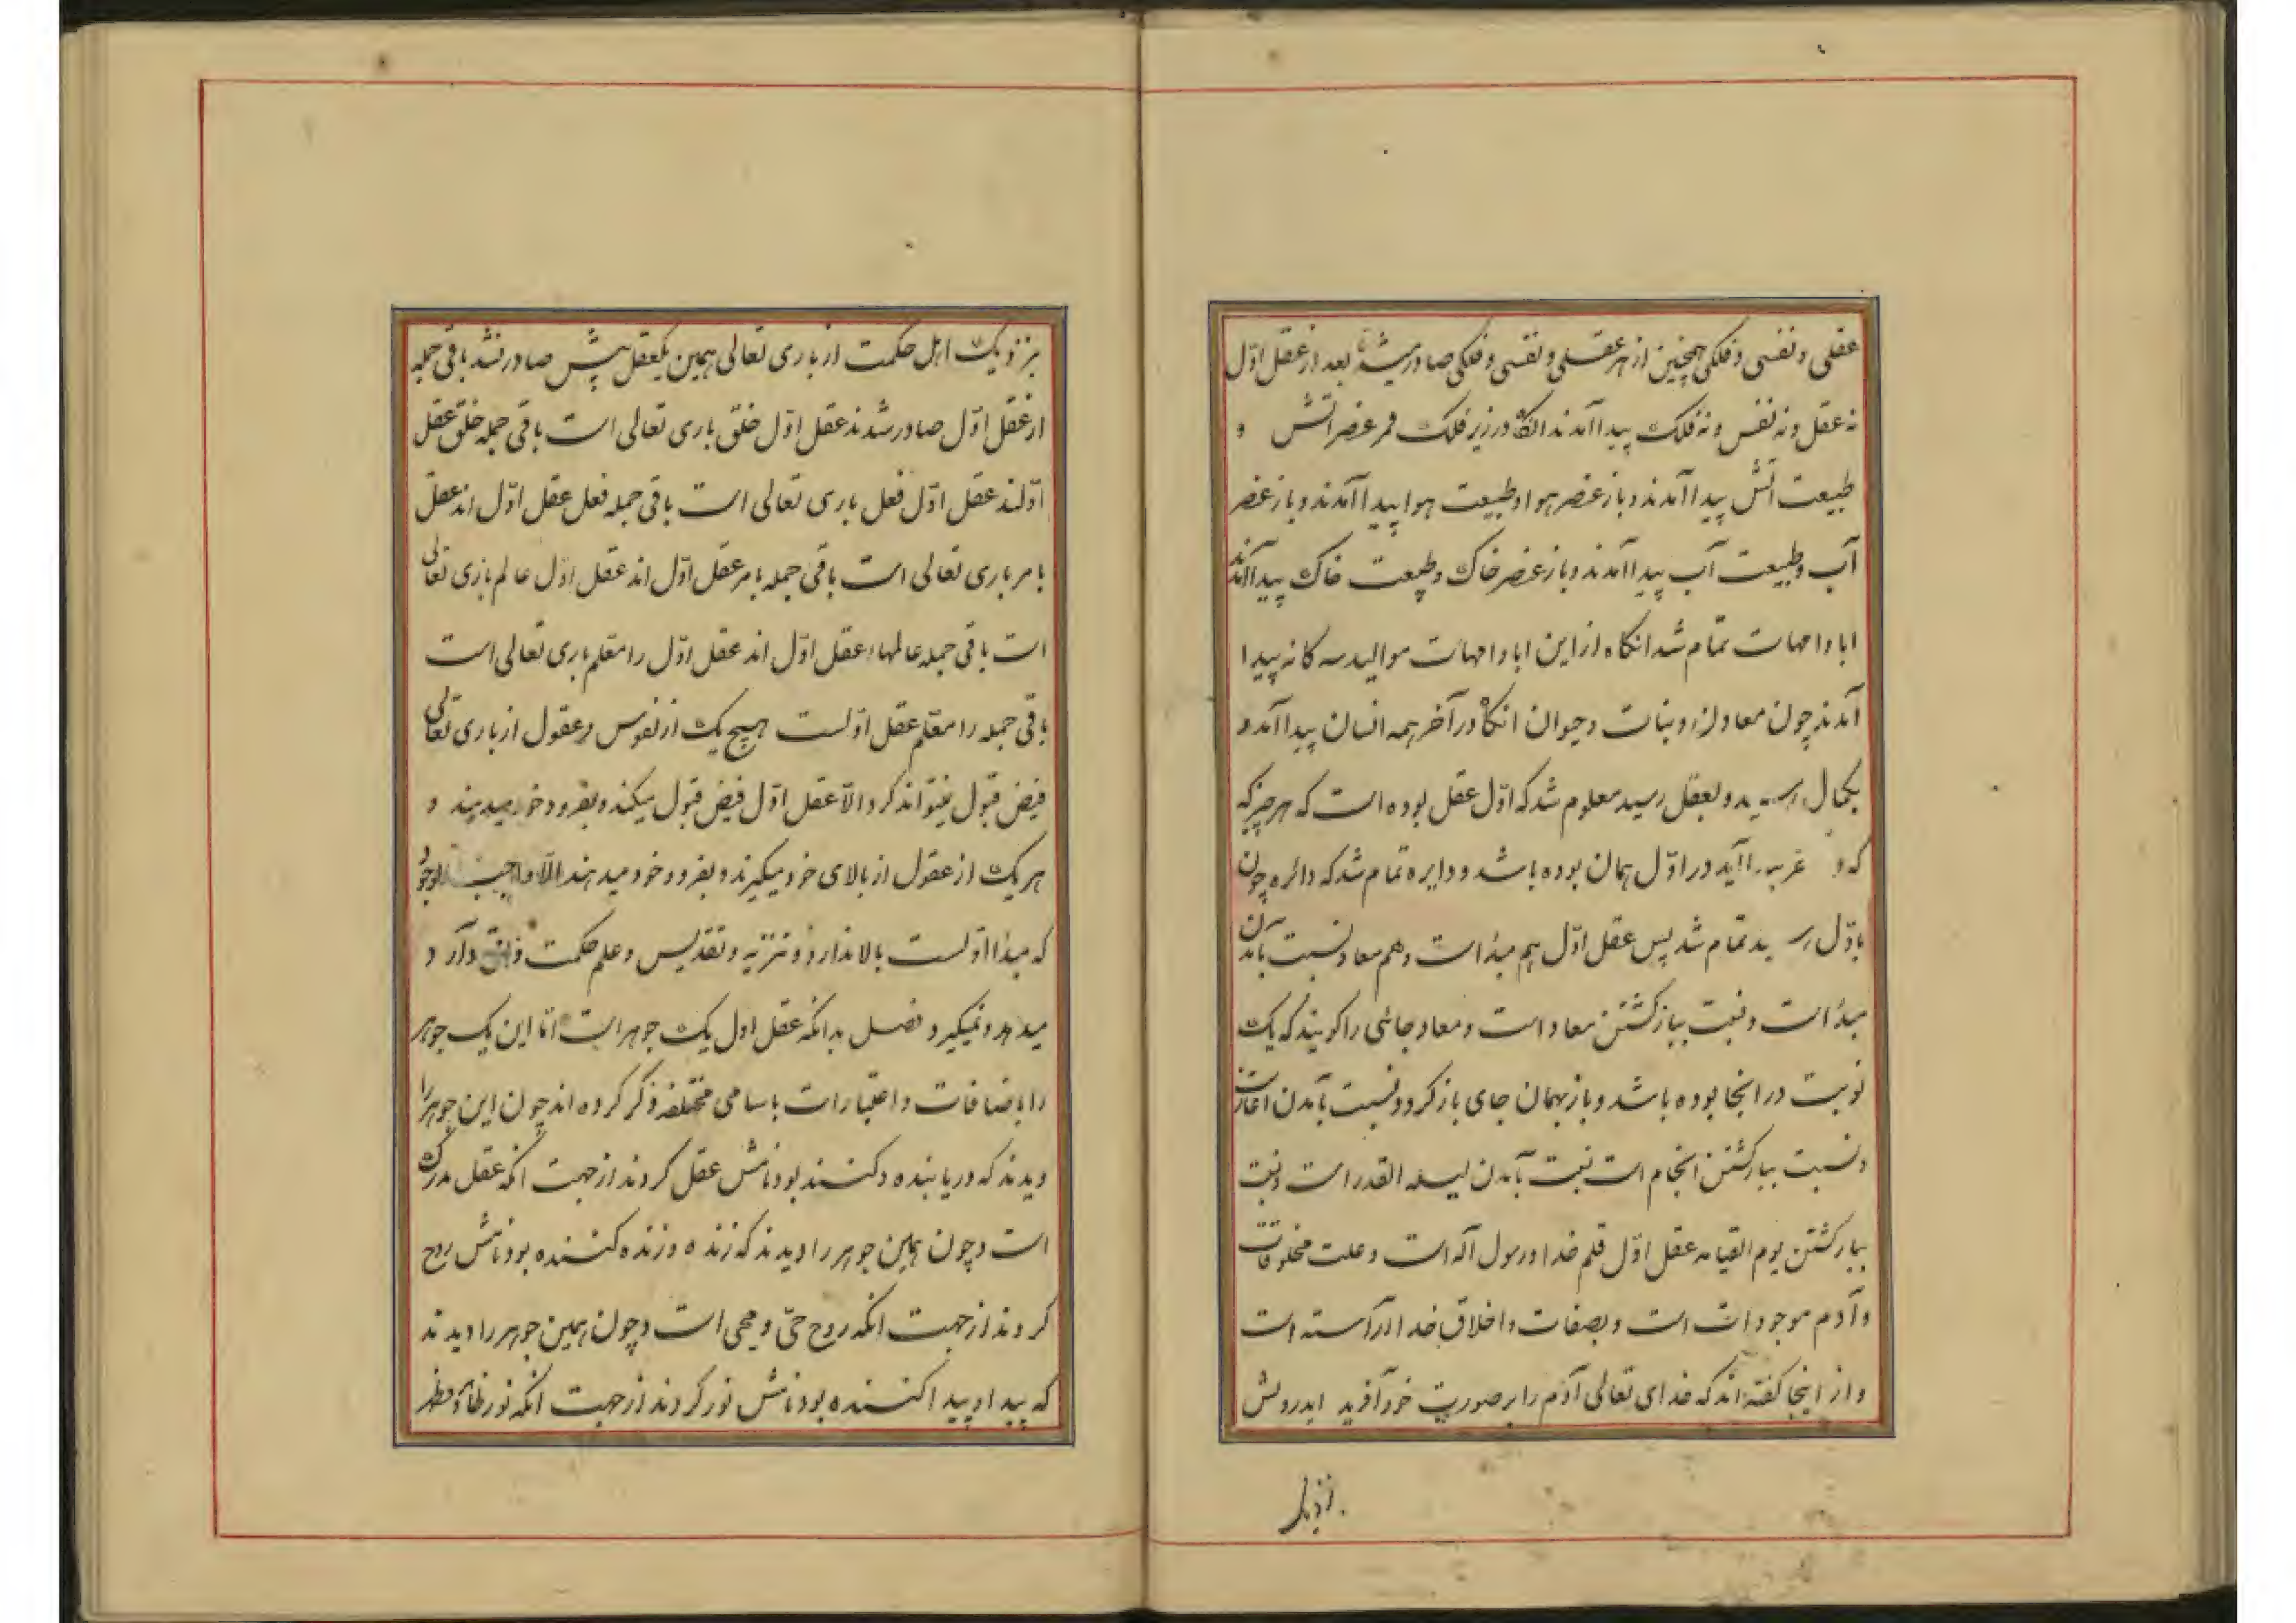 عقلی و نفسی و فلکی همچنین از هر عقلی و نفسی و فلکی صادر میشد تا بعد از عقل اوّل
نه عقل و نه نفس و نه فلک پیدا آمدند انگاه در زیر فلک قمر عنصر اتش و
طبیعت آتش پیدا آمدند و باز عنصر هوا و طبیعت هوا پیدا آمدند و باز عنصر
آب و طبیعت آب پیدا آمدند و باز عنصر خاک و طبیعت خاک پیدا آمدند
ابا و امهات تمام شد انگاه از این ابا و امهات موالید سه کانه پیدا
آمدند چون معادن و نبات و حیوان انگاه در آخر همه انسان پیدا آمد و
بکمال رسید و بعقل رسید معلوم شد که اوّل عقل بوده است که هر چیز که
که در آید در اوّل همان بوده باشد و دایره تمام شد که دائره چون
باوّل رسید تمام شد پس عقل اوّل هم مبدا است و هم معاد نسبت بآمدن
مبدا است و نسبت ببازکشتن معاد است و معاد جائی را کویند که یک
نوبت در انجا بوده باشد و باز بهمان جای باز کردد نسبت بآمدن اغاز است
و نسبت ببازکشتن انجام است نسبت بآمدن لیله القدر است و نسبت
ببازکشتن یوم القیامه عقل اوّل قلم خدا و رسول آله است و علت مخلوقات
و آدم موجودات است و بصفات و اخلاق خدا آراسته است
و از اینجا کفته اند که خدای تعالی آدم را بر صورت خود آفرید ایدرویش
بنزدیک
بنزدیک اهل حکمت از باری تعالی همین یکعقل بیش صادر نشد باقی جمله
از عقل اوّل صادر شدند عقل اوّل خلق باری تعالی است باقی جمله خلق عقل
اوّلند عقل اوّل فعل باری تعالی است باقی جمله فعل عقل اوّل اند عقل
بامر باری تعالی است باقی جمله بامر عقل اوّل اند عقل اوّل عالم باری تعالی
است باقی جمله عالمهاء عقل اوّل اند عقل اوّل را معلم باری تعالی است
باقی جمله را معلم عقل اوّلست هیچ یک از نفوس و عقول از باری تعالی
فیض قبول نمیتواند کرد الّا عقل اوّل فیض قبول میکند و بفرود خود میدهند و
هر یک از عقول از بالای خود میکیرند و بفرود خود میدهند الّا واجب الوجود
که مبدا اوّلست بالا ندارد و تنزیه و تقدیس و علم حکمت دارد و
میدهد و نمیکیرد فصل بدانکه عقل اول یک جوهر است امّا این یک جوهر
را باضافات و اعتبارات باسامی مختلفه ذکر کرده اند چون این جوهر را
دیدند که دریابنده و کننده بود نامش عقل کردند از جهت انکه عقل مدرک
است و چون همین جوهر را دیدند که زنده و زنده کننده بود نامش روح
کردند از جهت انکه روح حیّ و محیی است و چون همین جوهر را دیدند
که پیدا و پیدا کننده بود نامش نور کردند از جهت انکه نور ظاهر و مظهر